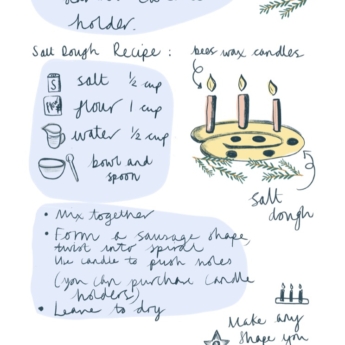 holder.
Salt Dough Recipe :
bees wax candles
salt ½ cup
flour 1 cup
water ½ cup
bowl and
spoon
salt
dough
• Mix together
• Form a sausage shape,
twist into spiral
Use candle to push holes
(you can purchase candle
holders)
• Leave to dry
Make any
shape you